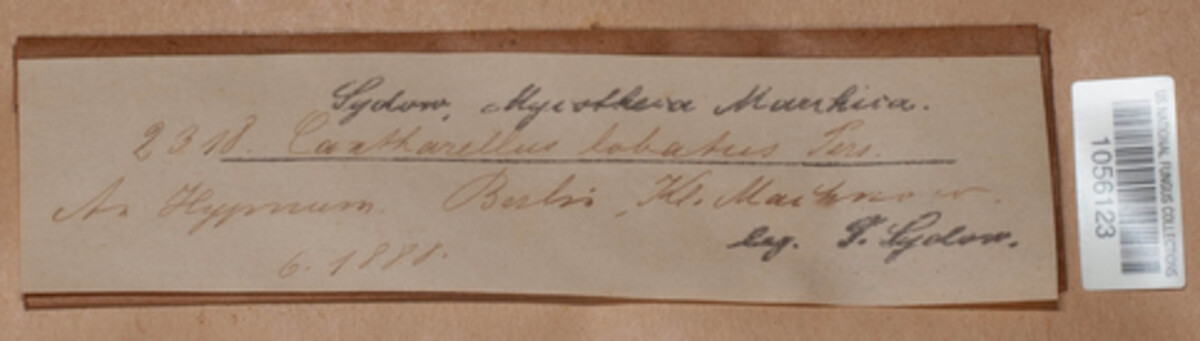 Sydow, Mycotheca Marchica.
2318. Cantharellus lobatus Pers.
An Hypnum. Berlin, Kl. Machnow.
6. 1888.
leg. P. Sydow.
US NATIONAL FUNGUS COLLECTIONS
1056123